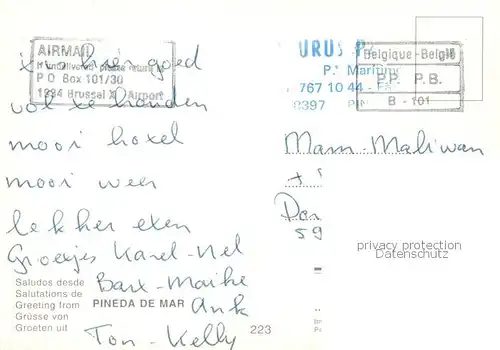 AIRMAIL
If undelivered please return
P O Box 101/30
1934 Brussel X Airport
hier goed
vol te houden
mooi hotel
mooi weer
lekker eten
Groetjes Karel-Nel
Bart-Maike
Ank
Ton-Kelly
Saludos desde
Salutations de
Greeting from
Grüsse von
Groeten uit
PINEDA DE MAR
223
URUS P
P. Maritim
767 10 44 - F
8397 PIN
Belgique - België
P.P. P.B.
B - 101
Mam-Maliwan
+
59
privacy protection
Datenschutz